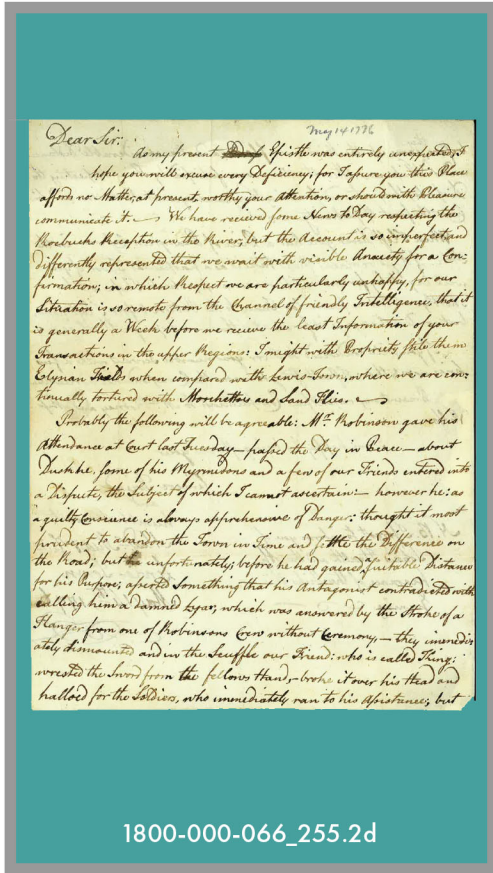 May 14 1776
Dear Sir:
As my present Epistle was entirely unexpected, I
hope you will excuse every Deficiency; for I assure you this Place
affords no Matter, at present, worthy your Attention, or should with Pleasure
communicate it. We have received some News to Day respecting the
Roebucks Reception in the River, but the Account is so imperfect and
differently represented that we wait with visible Anxiety for a Con-
firmation; in which Respect we are particularly unhappy, for our
Situation is so remote from the Channel of friendly Intelligence, that it
is generally a Week before we receive the least Information of your
Transactions in the upper Regions: I might with Propriety stile them
Elysian when compared with Lewis-Town, where we are con-
tinually tortured with Morchettos and Sand Flies.
Probably the following will be agreable: Mr. Robinson gave his
Attendance at Court last Tuesday — passed the Day in Peace — about
Duskhe, some of his Myrmidons and a few of our Friends entered into
a Dispute, the Subject of which I cannot ascertain: — however he: as
a guilty Conscience is always apprehensive of Danger: thought it most
prudent to abandon the Town in Time and settle the Difference on
the Road; but unfortunately, before he had gained suitable Distance
for his Purpose, asserted something that his Antagonist contradicted with
calling him a damned Lyar, which was answered by the Stroke of a
Hanger from one of Robinsons Crew without Ceremony, — they immedi-
ately dismounted and in the Scuffle our Friend: who is called Thing:
wrested the Sword from the fellows Hand, — broke it over his Head and
halloed for the Soldiers, who immediately ran to his Assistance; but
1800-000-066_255.2d